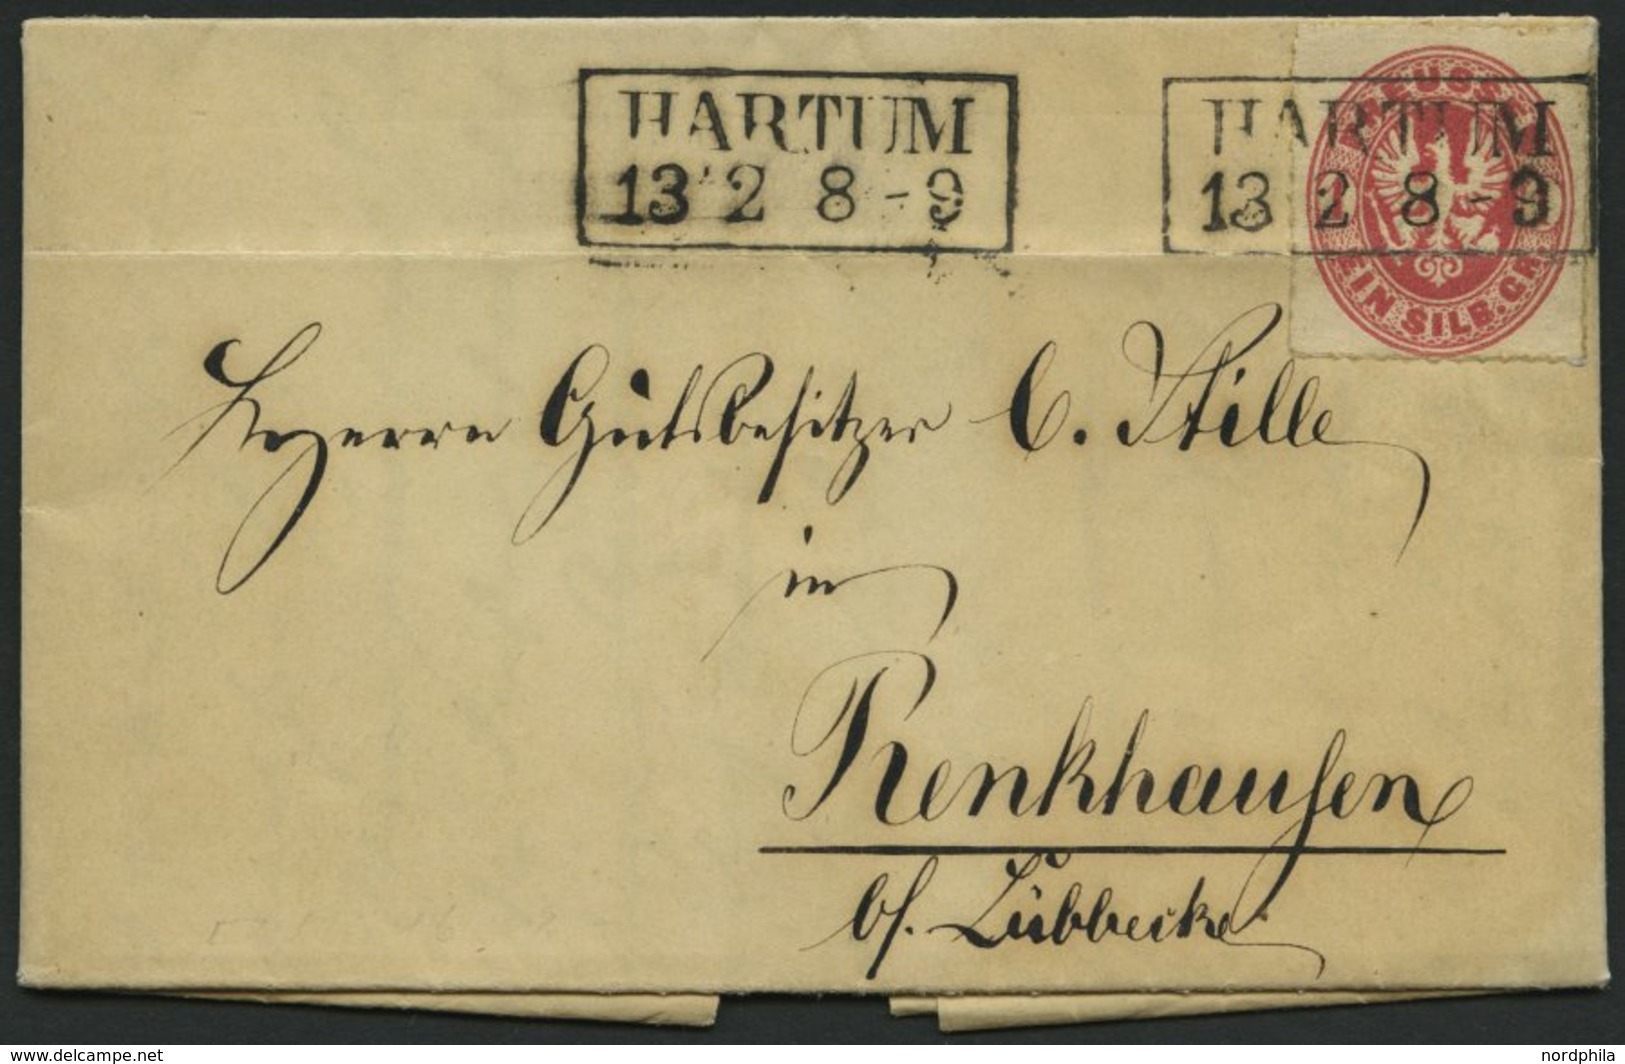 HARTUM
13 2 8 - 9
HARTUM
13 2 8 - 9
PREUSSEN
1
EIN SILB. GR.
Herrn Gutsbesitzer C. Stille
in
Renkhausen
b/. Lübbecke
www.delcampe.net
nordphila